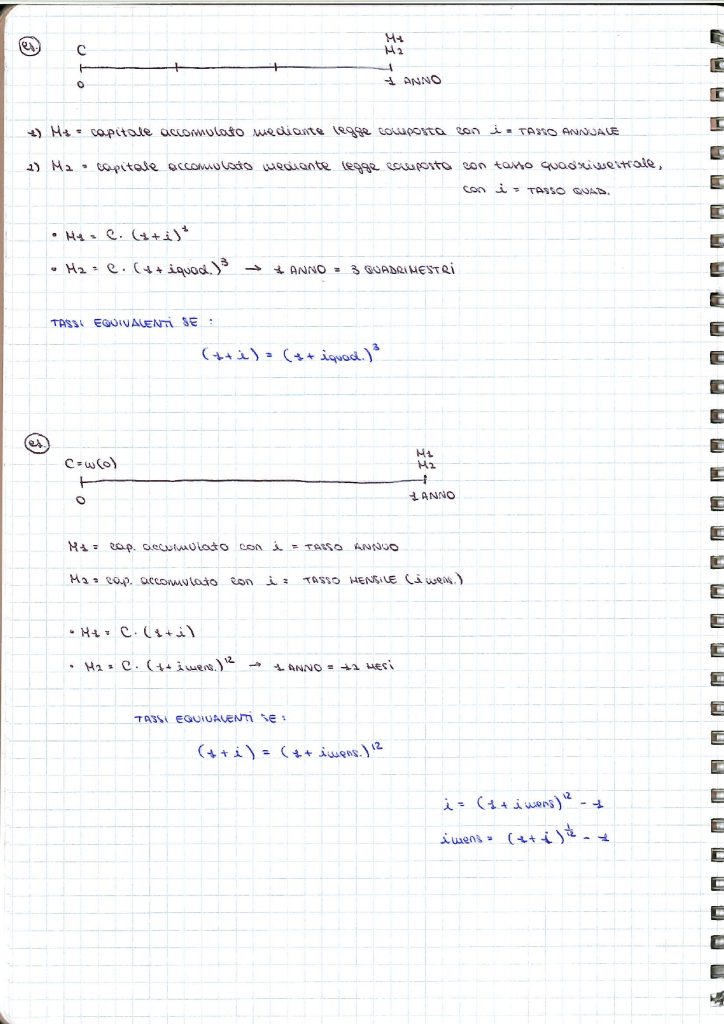 es.
C
M1
M2
0
1 ANNO
1) M1 = capitale accumulato mediante legge composta con i = TASSO ANNUALE
2) M2 = capitale accumulato mediante legge composta con tasso quadrimestrale,
con i = TASSO QUAD.
• M1 = C · (1+i)¹
• M2 = C · (1+ iquad.)³ → 1 ANNO = 3 QUADRIMESTRI
TASSI EQUIVALENTI SE :
(1+i) = (1+ iquad.)³
es.
C=w(0)
M1
M2
0
1 ANNO
M1 = cap. accumulato con i = TASSO ANNUO
M2 = cap. accumulato con i = TASSO MENSILE (i mens.)
• M1 = C · (1+i)
• M2 = C · (1+imens.)¹² → 1 ANNO = 12 MESI
TASSI EQUIVALENTI SE :
(1+i) = (1+ imens.)¹²
i = (1+imens)¹² - 1
imens = (1+i)^1/12 - 1